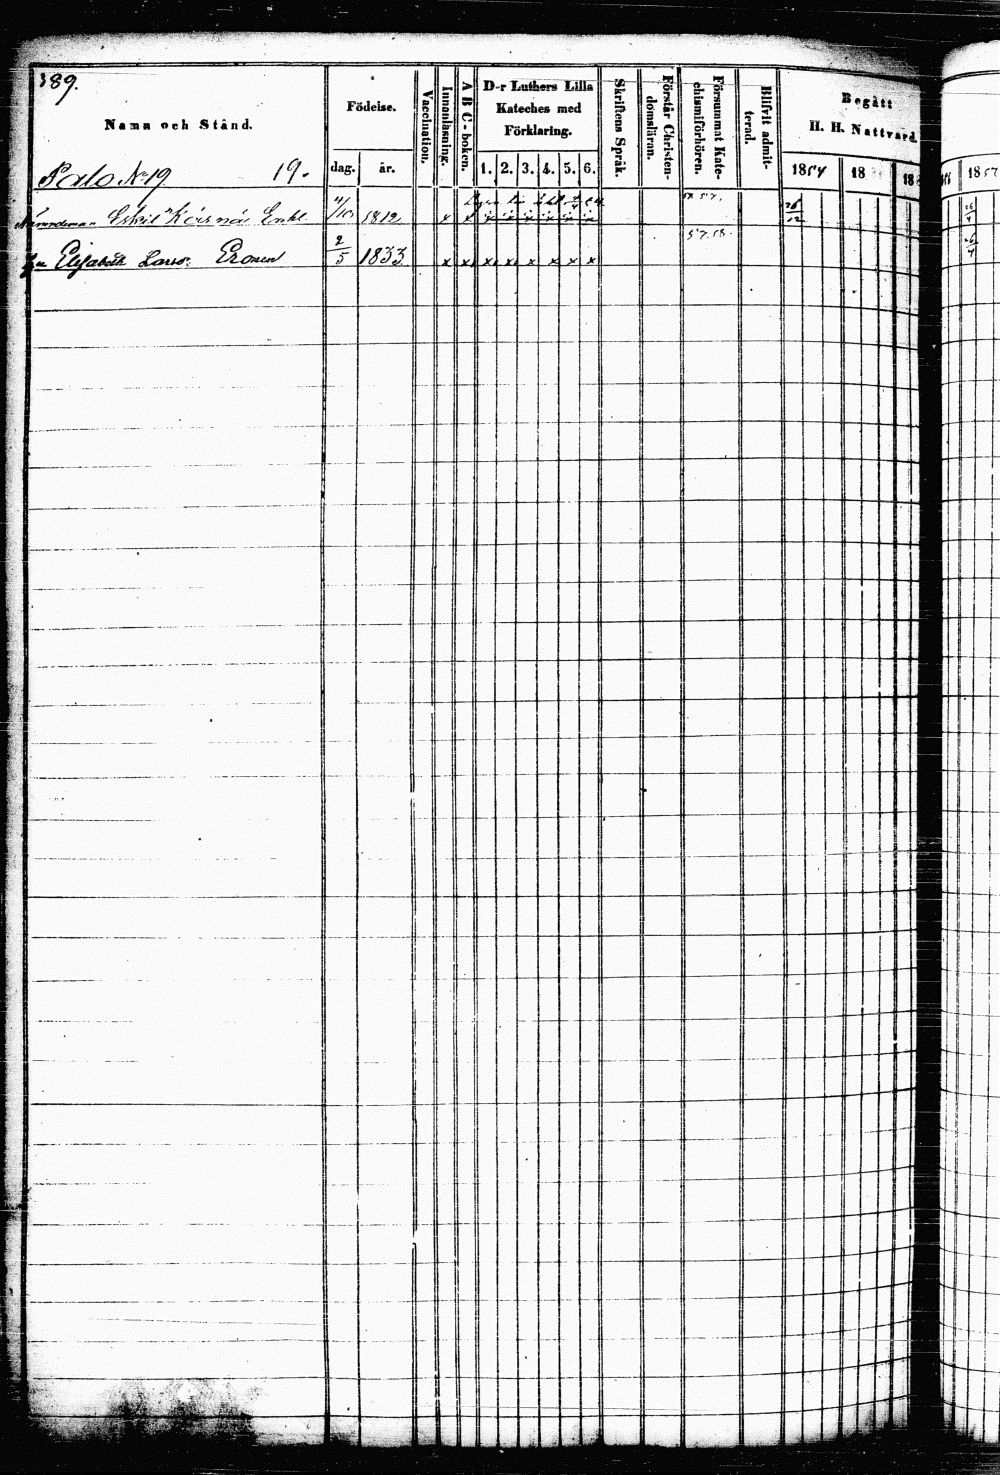 389.
Namn och Stånd.
Födelse.
dag. år.
Vaccination.
Innanläsning.
A B C-boken.
D-r Luthers Lilla
Kateches med
Förklaring.
1. 2. 3. 4. 5. 6.
Skriftens Språk.
Förstår Christen-
domsläran.
Försummat Kate-
chismiförhören.
Blifvit admit-
terad.
Begått
H. H. Nattvard
1854 18 18
1857
Palo No 19 19.
Eskil Enkl. 1812 x x
Elisabeth Larsd. 2/5 1833 x x x x x x x x
57. 58.